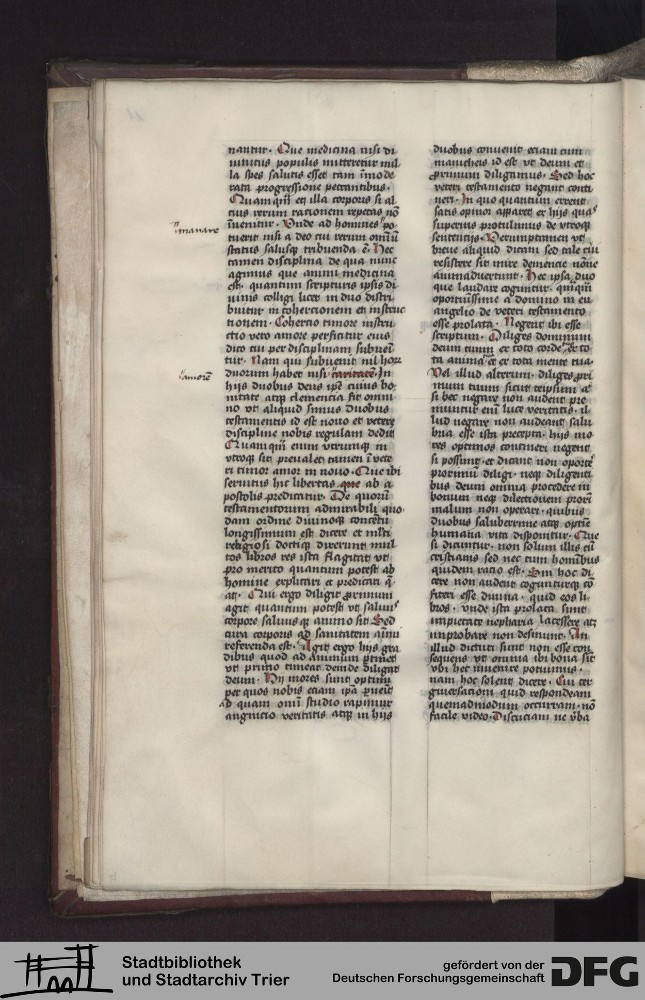 nantur. Que medicina nisi di
uinitus populis mitteretur nul
la spes salutis esset tam īmode
rata progressione peccantibus.
Quamqm̄ et illa corporis si al
cius rerum racionem repetas nō
inuenitur. Vnde ad homines po
tuerit nisi a deo cui rerum omīu
status salusq tribuenda ē. Nec
tamen disciplina de qua nunc
agimus que animi medicina
est. quantum scripturis ipsis di
uinis colligi licet in duo distri
buitur in cohercionem et instruc
tionem. Cohercio timore instru
ctio vero amore perficitur eius
dico cui per disciplinam subueni
tur. Nam qui subuenit nil horū
duorum habet nisi caritatem. In
hijs duobus deus ipē cuius bo
nitate atq clementia fit omni
no vt aliquid simus duobus
testamentis id est nouo et vetere
discipline nobis regulam dedit
Quamqm̄ enim vtrumq in
vtroq sit preualet tamen ī vete
ri timor amor in nouo. Que ibi
seruitus hic libertas que ab a
postolis predicatur. De quorū
testamentorum admirabili quo
dam ordine diuinoq concētu
longissimum est dicere et mlti
religiosi doctiq dixerunt mul
tos libros res ista flagitat vt
pro merito quantum potest ab
homine explicari et predicari q̄
at. Qui ergo diligit proximum
agit quantum potest vt saluus
corpore saluusq animo sit Sed
cura corporis ad sanitatem animi
referenda est. Agit ergo hijs gra
dibus quod ad animum ꝑtinet
vt primo timeat deinde diligat
deum. Hij mores sunt optimi
per quos nobis eciam ipa ꝓuenit
ad quam omī studio rapimur
agnitio veritatis atq in hijs
manare
amorē
duobus conuenit eciam cum
manicheis id est vt deum et
proximum diligamus. Sed hoc
veteri testamento negant conti
neri. In quo quantum errent
satis opinor apparet ex hijs quas
superius protulimus de vtroq
sentencijs. Verumptamen vt
breue aliquid dicam sed tale cui
resistere sit mire demencie nōne
animaduertunt. Hec ipsa duo
que laudare coguntur. quāqm̄
oportunissime a domino in eu
angelio de veteri testamento
esse prolata. Negent ibi esse
scriptum. Diliges dominum
deum tuum ex toto corde et ex to
ta anima et ex tota mente tua.
Vel illud alterum. diliges proxi
mum tuum sicut teipsum at
si hec negare non audent pre
muntur enim luce veritatis. il
lud negare non audeant salu
bria esse ista precepta. hijs mo
res optimos contineri negent
si possunt. et dicant non oportē
proximū diligi. neq diligenti
bus deum omnia procedere in
bonum neq dilectionem proxī
malum non operari. quibus
duobus saluberrime atq optīe
humana vita disponitur. Que
si dicuntur. non solum illis cū
cristianis sed nec cum hominibus
quidem racio est. Sin hoc di
cere non audent coguntur cō
fiteri esse diuina. quid eos li
bros. vnde ista prolata sunt
impietate nepharia lacessere atq
improbare non desinunt. An
illud dicturi sunt non esse con
sequens vt omnia ibi bona sit
vbi hec inuenire potuimus.
nam hoc solent dicere. Cui ter
giuersacioni quid respondeam
quemadmodum occurram. nō
facile video. Discuciam ne vba
Stadtbibliothek
und Stadtarchiv Trier
gefördert von der
Deutschen Forschungsgemeinschaft
DFG